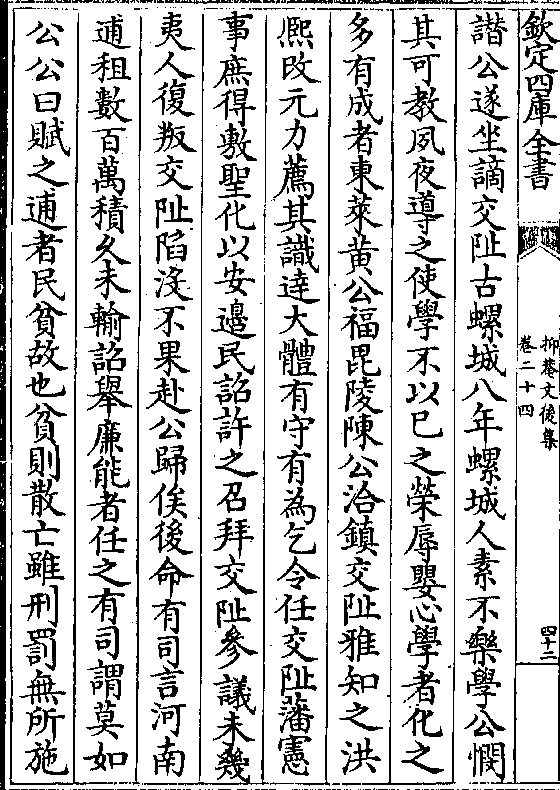 欽定四庫全書
抑菴文後集
卷二十四
四十二
譖公遂坐謫交阯古螺城八年螺城人素不樂學公憫
其可教夙夜導之使學不以已之榮辱嬰心學者化之
多有成者東萊黄公福毘陵陳公洽鎮交阯雅知之洪
熈改元力薦其識逹大體有守有為乞令任交阯藩憲
事庶得敷聖化以安邉民詔許之召拜交阯參議未幾
夷人復叛交阯陷沒不果赴公歸俟後命有司言河南
逋租數百萬積久未輸詔舉廉能者任之有司謂莫如
公公曰賦之逋者民貧故也貧則散亡雖刑罰無所施